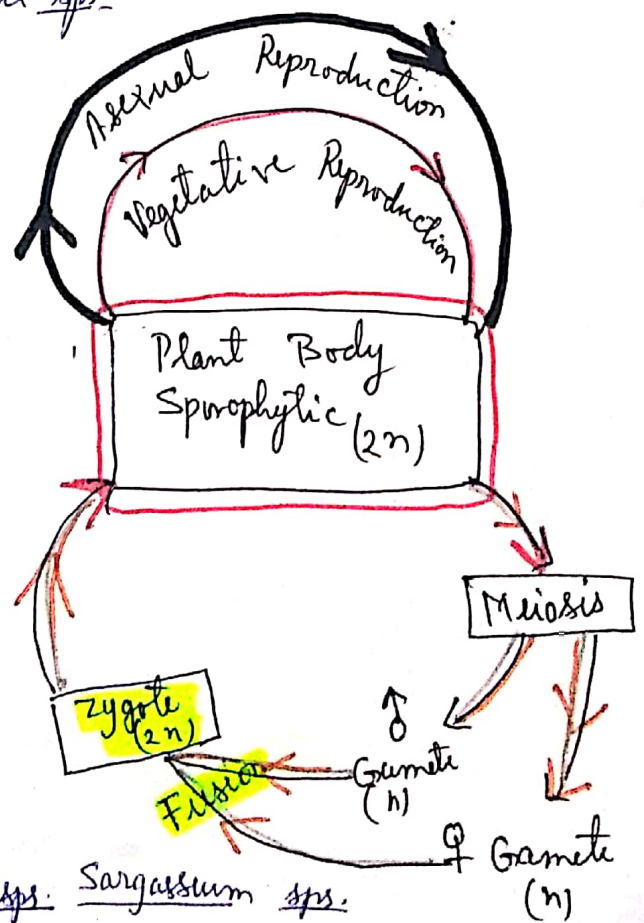 sps.
Asexual Reproduction
Vegetative Reproduction
Plant Body
Sporophytic (2n)
Meiosis
Zygote
(2n)
Fusion
♂
Gamete
(n)
♀ Gamete
(n)
sps. Sargassum sps.